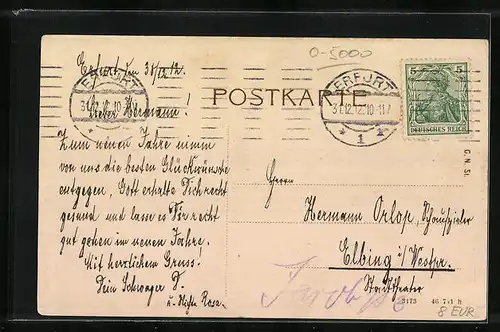 0-5000
Erfurt den 31/12 12.
ERFURT
31.12.12.10-11V
* 1 *
5 5
DEUTSCHES REICH
Lieber Hermann!
POSTKARTE
Zum neuen Jahre nimm
von uns die besten Glückwünsche
entgegen, Gott erhalte Dich recht
gesund und lasse es Dir recht
gut gehen im neuen Jahre!
Mit herzlichem Gruss.
Dein Schwager
u. Nichte Rosa.
G. N. St.
Herrn
Hermann Orlop, Schauspieler
Elbing i/Westpr.
Stadttheater
3173
8 EUR.